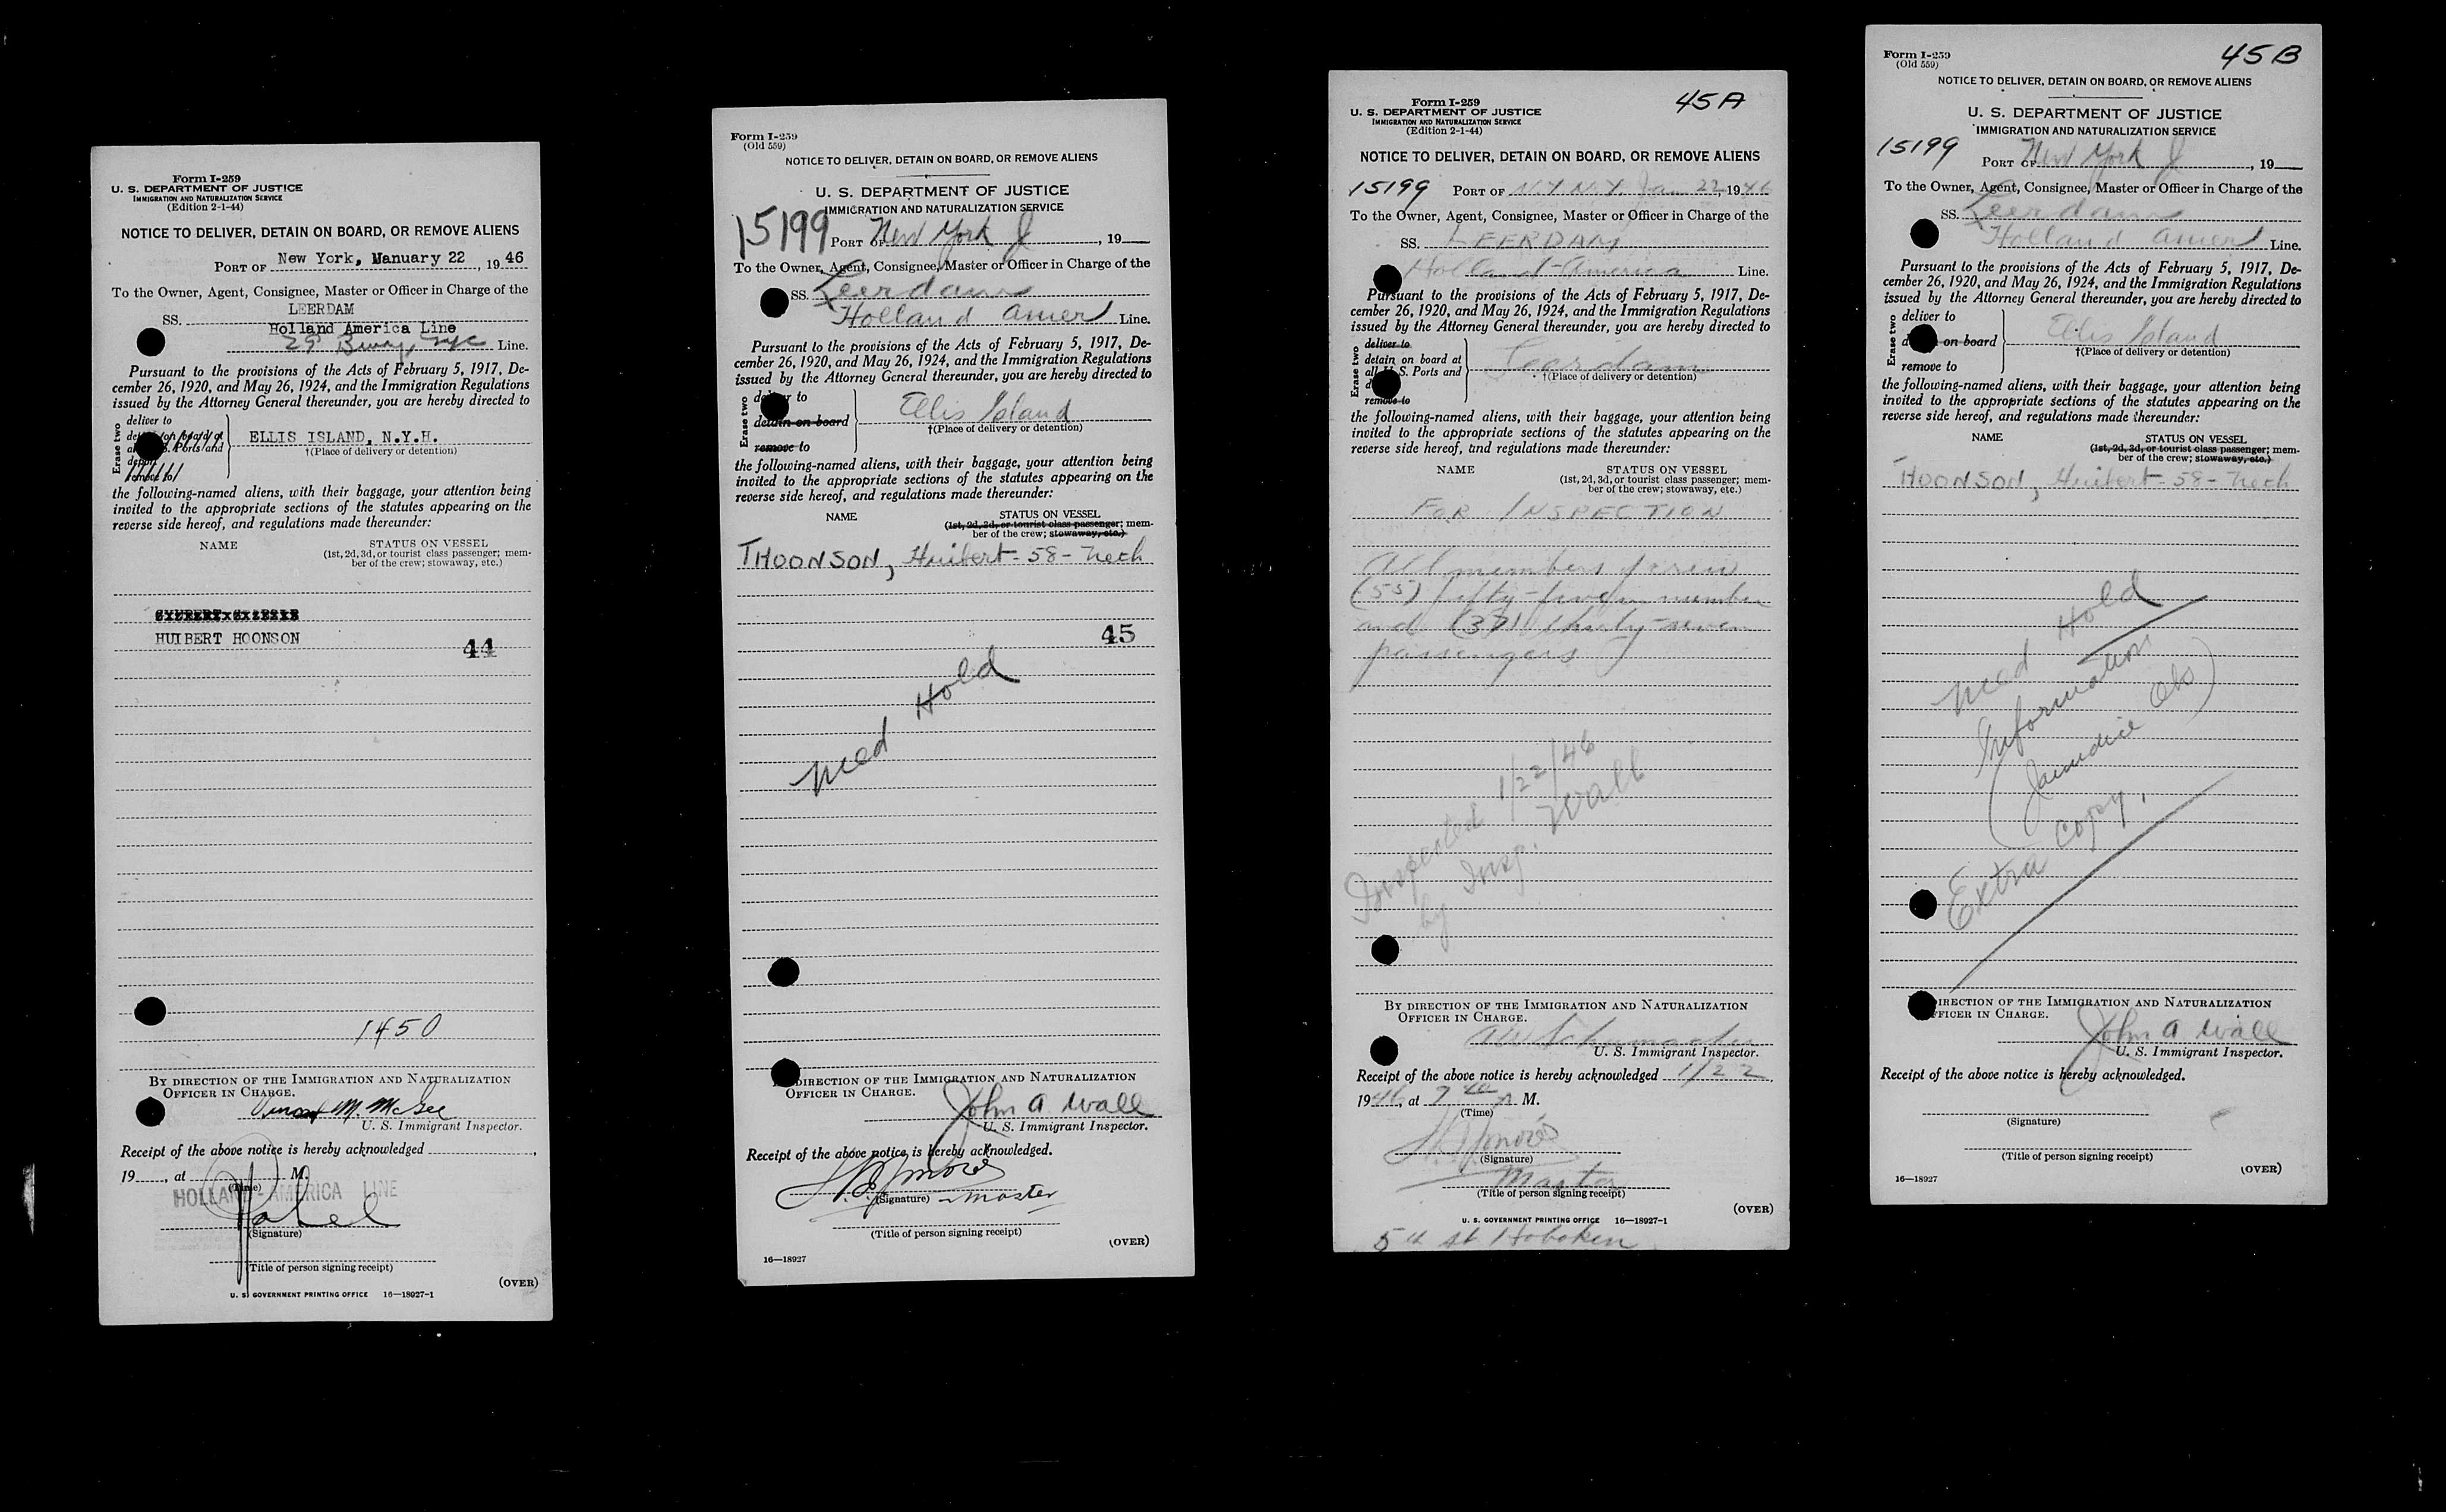 Form I-259
U. S. DEPARTMENT OF JUSTICE
IMMIGRATION AND NATURALIZATION SERVICE
(Edition 2-1-44)
NOTICE TO DELIVER, DETAIN ON BOARD, OR REMOVE ALIENS
PORT OF New York, Manuary 22, 19 46
To the Owner, Agent, Consignee, Master or Officer in Charge of the
SS. LEERDAM
Holland America Line
29 Bway, NYC Line.
Pursuant to the provisions of the Acts of February 5, 1917, De-
cember 26, 1920, and May 26, 1924, and the Immigration Regulations
issued by the Attorney General thereunder, you are hereby directed to
Erase two
deliver to
on board at
S. Ports and
remove to
ELLIS ISLAND, N.Y.H.
†(Place of delivery or detention)
the following-named aliens, with their baggage, your attention being
invited to the appropriate sections of the statutes appearing on the
reverse side hereof, and regulations made thereunder:
NAME STATUS ON VESSEL
(1st, 2d, 3d, or tourist class passenger; mem-
ber of the crew; stowaway, etc.)
HUIBERT HOONSON
44
1450
BY DIRECTION OF THE IMMIGRATION AND NATURALIZATION
OFFICER IN CHARGE.
Vincent M. McGee
U. S. Immigrant Inspector.
Receipt of the above notice is hereby acknowledged
19 , at M.
(Time)
HOLLAND-AMERICA LINE
(Signature)
(Title of person signing receipt)
(OVER)
U. S. GOVERNMENT PRINTING OFFICE 16—18927-1
Form I-259
(Old 559)
NOTICE TO DELIVER, DETAIN ON BOARD, OR REMOVE ALIENS
U. S. DEPARTMENT OF JUSTICE
IMMIGRATION AND NATURALIZATION SERVICE
15199 PORT OF New York J , 19
To the Owner, Agent, Consignee, Master or Officer in Charge of the
SS. Leerdam
Holland Amer Line.
Pursuant to the provisions of the Acts of February 5, 1917, De-
cember 26, 1920, and May 26, 1924, and the Immigration Regulations
issued by the Attorney General thereunder, you are hereby directed to
Erase two
to
detain on board
remove to
Ellis Island
†(Place of delivery or detention)
the following-named aliens, with their baggage, your attention being
invited to the appropriate sections of the statutes appearing on the
reverse side hereof, and regulations made thereunder:
NAME STATUS ON VESSEL
(1st, 2d, 3d, or tourist class passenger; mem-
ber of the crew; stowaway, etc.)
THOONSON, Huibert - 58 - Neth
45
Med Hold
DIRECTION OF THE IMMIGRATION AND NATURALIZATION
OFFICER IN CHARGE.
John A Wall
U. S. Immigrant Inspector.
Receipt of the above notice is hereby acknowledged.
(Signature) - master
(Title of person signing receipt)
(OVER)
16—18927
Form I-259
45A
U. S. DEPARTMENT OF JUSTICE
IMMIGRATION AND NATURALIZATION SERVICE
(Edition 2-1-44)
NOTICE TO DELIVER, DETAIN ON BOARD, OR REMOVE ALIENS
15199 PORT OF N.Y. N.Y. Jan 22, 19 46
To the Owner, Agent, Consignee, Master or Officer in Charge of the
SS. LEERDAM
Holland-America Line.
Pursuant to the provisions of the Acts of February 5, 1917, De-
cember 26, 1920, and May 26, 1924, and the Immigration Regulations
issued by the Attorney General thereunder, you are hereby directed to
Erase two
deliver to
detain on board at
all U.S. Ports and
remove to
Leerdam
†(Place of delivery or detention)
the following-named aliens, with their baggage, your attention being
invited to the appropriate sections of the statutes appearing on the
reverse side hereof, and regulations made thereunder:
NAME STATUS ON VESSEL
(1st, 2d, 3d, or tourist class passenger; mem-
ber of the crew; stowaway, etc.)
FOR INSPECTION
All members of crew
(55) fifty-five in number
and (37) thirty-seven
passengers
Inspected 1/22/46
by Insp. Wall
BY DIRECTION OF THE IMMIGRATION AND NATURALIZATION
OFFICER IN CHARGE.
U. S. Immigrant Inspector.
Receipt of the above notice is hereby acknowledged 1/22,
19 46, at 7 40 A M.
(Time)
(Signature)
Master
(Title of person signing receipt)
(OVER)
U. S. GOVERNMENT PRINTING OFFICE 16—18927-1
5th St Hoboken
Form I-259
(Old 559)
45B
NOTICE TO DELIVER, DETAIN ON BOARD, OR REMOVE ALIENS
U. S. DEPARTMENT OF JUSTICE
IMMIGRATION AND NATURALIZATION SERVICE
15199 PORT OF New York J , 19
To the Owner, Agent, Consignee, Master or Officer in Charge of the
SS. Leerdam
Holland Amer Line.
Pursuant to the provisions of the Acts of February 5, 1917, De-
cember 26, 1920, and May 26, 1924, and the Immigration Regulations
issued by the Attorney General thereunder, you are hereby directed to
Erase two
deliver to
on board
remove to
Ellis Island
†(Place of delivery or detention)
the following-named aliens, with their baggage, your attention being
invited to the appropriate sections of the statutes appearing on the
reverse side hereof, and regulations made thereunder:
NAME STATUS ON VESSEL
(1st, 2d, 3d, or tourist class passenger; mem-
ber of the crew; stowaway, etc.)
HOONSON, Huibert - 58 - Neth
Med Hold
Information
(Jaundice Obs)
Extra Copy.
DIRECTION OF THE IMMIGRATION AND NATURALIZATION
OFFICER IN CHARGE.
John A Wall
U. S. Immigrant Inspector.
Receipt of the above notice is hereby acknowledged.
(Signature)
(Title of person signing receipt)
(OVER)
16—18927